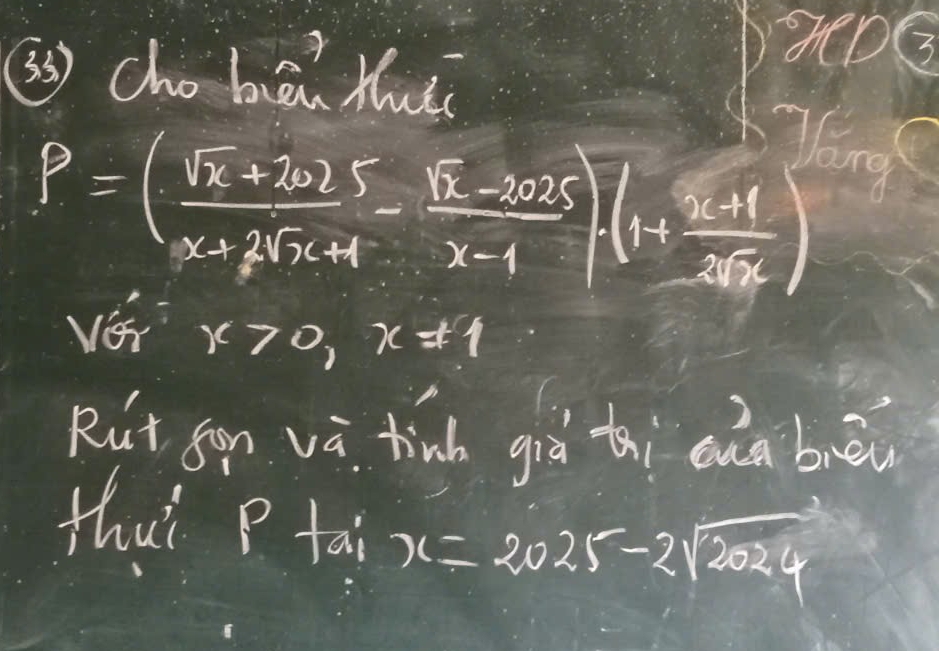 33 Cho biểu thức
P = ( (√x + 2025)/(x + 2√x + 1) - (√x - 2025)/(x - 1) ) . ( 1 + (x + 1)/(2√x) )
với x > 0, x ≠ 1
Rút gọn và tính giá trị của biểu
thức P tại x = 2025 - 2√2024
HD 3
Vắng